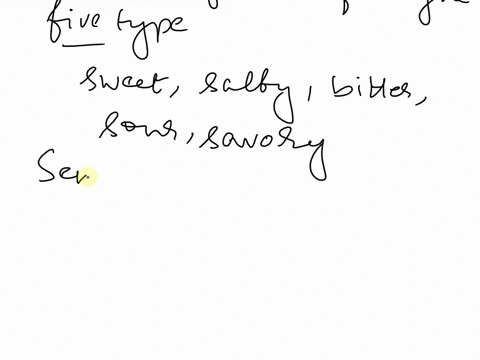 five type
sweet, salty, bitter,
sour, savory
Sen